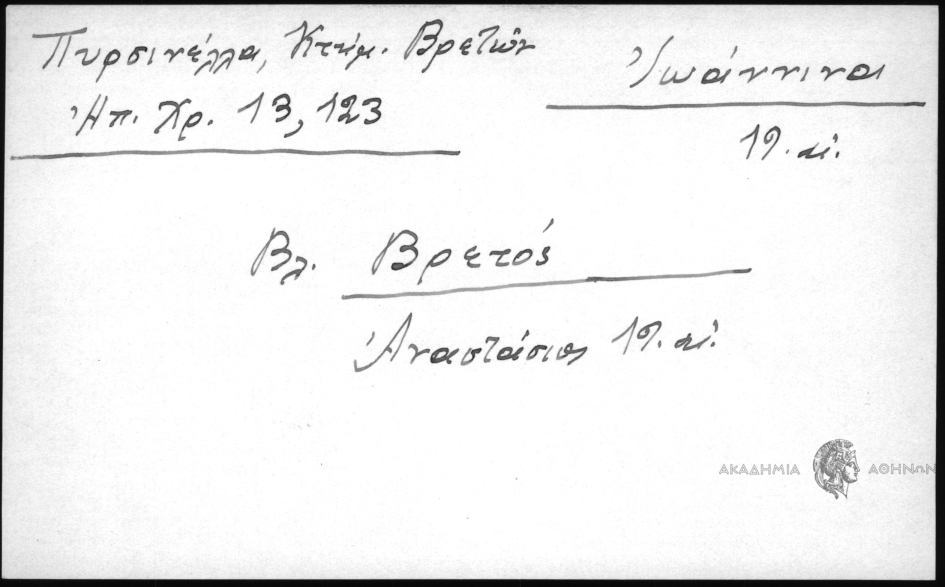 Πυρσινέλλα, Κτημ. Βρετῶν
Ἠπ. Χρ. 13, 123
Ἰωάννινα
19. αἰ.
Βλ. Βρετός
Ἀναστάσιος 19. αἰ.
ΑΚΑΔΗΜΙΑ ΑΘΗΝΩΝ